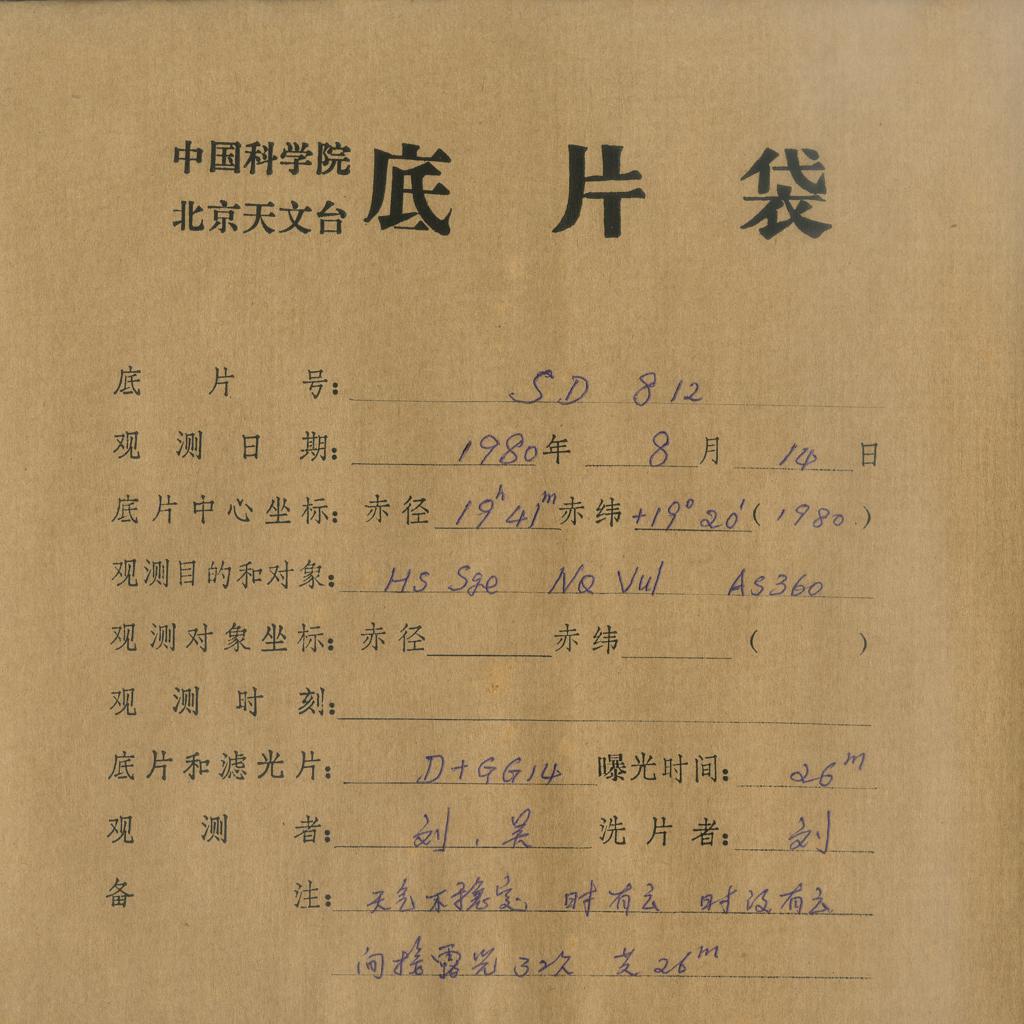 中国科学院
北京天文台
底片袋
底片号: SD 812
观测日期: 1980年 8月 14日
底片中心坐标: 赤径 19h 41m 赤纬 +19° 20' (1980.)
观测目的和对象: HS Sge NQ Vul AS360
观测对象坐标: 赤径 赤纬 ( )
观测时刻:
底片和滤光片: D+GG14 曝光时间: 26m
观测者: 刘.吴 洗片者: 刘
备注: 天气不稳定 时有云 时没有云
露光3次 共26m